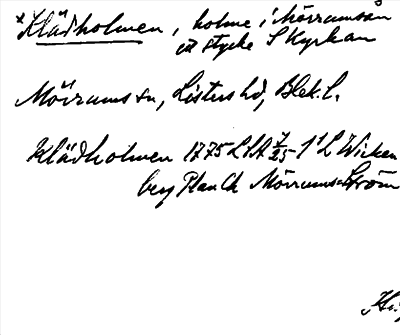 *Klädholmen, holme i Mörrumsån
ett stycke S Kyrkan
Mörrums sn, Listers hd, Blek. l.
Klädholmen 1775 LSA 7/25-1 1 L Wicken
berg Plan Ch Mörrums Ström